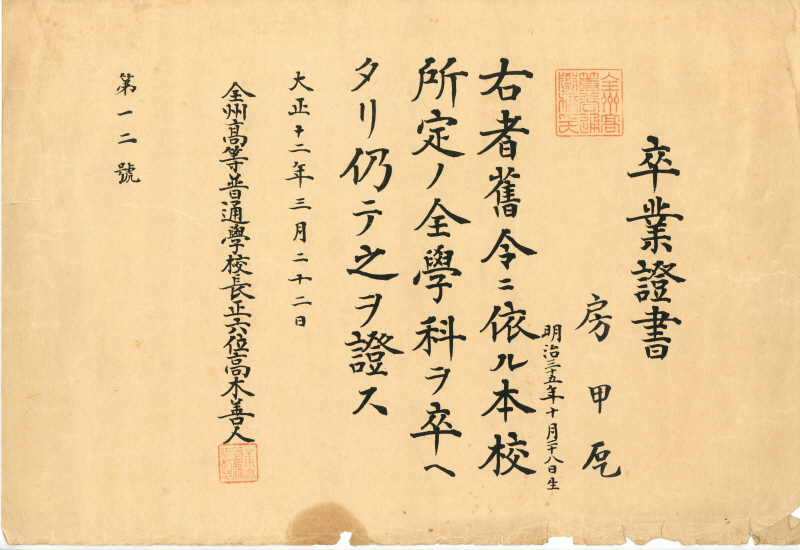 卒業證書
房甲
明治三十五年十月二十八日生
右者舊令ニ依ル本校
所定ノ全學科ヲ卒ヘ
タリ仍テ之ヲ證ス
大正十二年三月二十二日
全州高等普通學校長正六位高木善人
第一二號